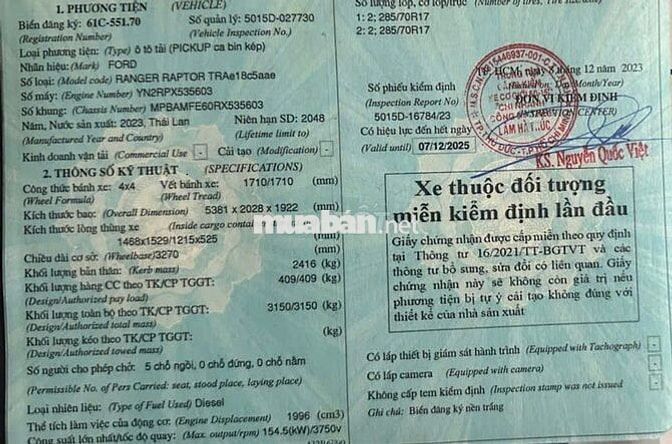 1. PHƯƠNG TIỆN (VEHICLE)
Biển đăng ký: 61C-551.70 Số quản lý: 5015D-027730
(Registration Number) (Vehicle Inspection No.)
Loại phương tiện: (Type) ô tô tải (PICKUP ca bin kép)
Nhãn hiệu: (Mark) FORD
Số loại: (Model code) RANGER RAPTOR TRAe18c5aae
Số máy: (Engine Number) YN2RPX535603
Số khung: (Chassis Number) MPBAMFE60RX535603
Năm, Nước sản xuất: 2023, Thái Lan Niên hạn SD: 2048
(Manufactured Year and Country) (Lifetime limit to)
Kinh doanh vận tải (Commercial Use) - Cải tạo (Modification) -
2. THÔNG SỐ KỸ THUẬT (SPECIFICATIONS)
Công thức bánh xe: 4x4 Vết bánh xe: 1710/1710 (mm)
(Wheel Formula) (Wheel Tread)
Kích thước bao: (Overall Dimension) 5381 x 2028 x 1922 (mm)
Kích thước lòng thùng xe (Inside cargo container
1468x1529/1215x525 (mm)
Chiều dài cơ sở: (Wheelbase) 3270 (mm)
Khối lượng bản thân: (Kerb mass) 2416 (kg)
Khối lượng hàng CC theo TK/CP TGGT: 409/409 (kg)
(Design/Authorized pay load)
Khối lượng toàn bộ theo TK/CP TGGT: 3150/3150 (kg)
(Design/Authorized total mass)
Khối lượng kéo theo TK/CP TGGT: (kg)
(Design/Authorized towed mass)
Số người cho phép chở: 5 chỗ ngồi, 0 chỗ đứng, 0 chỗ nằm
(Permissible No. of Pers Carried: seat, stood place, laying place)
Loại nhiên liệu: (Type of Fuel Used) Diesel
Thể tích làm việc của động cơ: (Engine Displacement) 1996 (cm3)
Công suất lớn nhất/tốc độ quay: (Max. output/rpm) 154.5(kW)/3750v
Số lượng lốp, cỡ lốp/trục (Number of tires, Tire size
1: 2; 285/70R17
2: 2; 285/70R17
12 năm 2023
Số phiếu kiểm định
(Inspection Report No)
5015D-16784/23
ĐƠN VỊ KIỂM ĐỊNH
Có hiệu lực đến hết ngày
(Valid until) 07/12/2025
KS. Nguyễn Quốc Việt
Xe thuộc đối tượng
miễn kiểm định lần đầu
Giấy chứng nhận được cấp miễn theo quy định
tại Thông tư 16/2021/TT-BGTVT và các
thông tư bổ sung, sửa đổi có liên quan. Giấy
chứng nhận này sẽ không còn giá trị nếu
phương tiện bị tự ý cải tạo không đúng với
thiết kế của nhà sản xuất
Có lắp thiết bị giám sát hành trình (Equipped with Tachograph) -
Có lắp camera (Equipped with camera) -
Không cấp tem kiểm định (Inspection stamp was not issued) -
Ghi chú: Biển đăng ký nền trắng
muaban.net